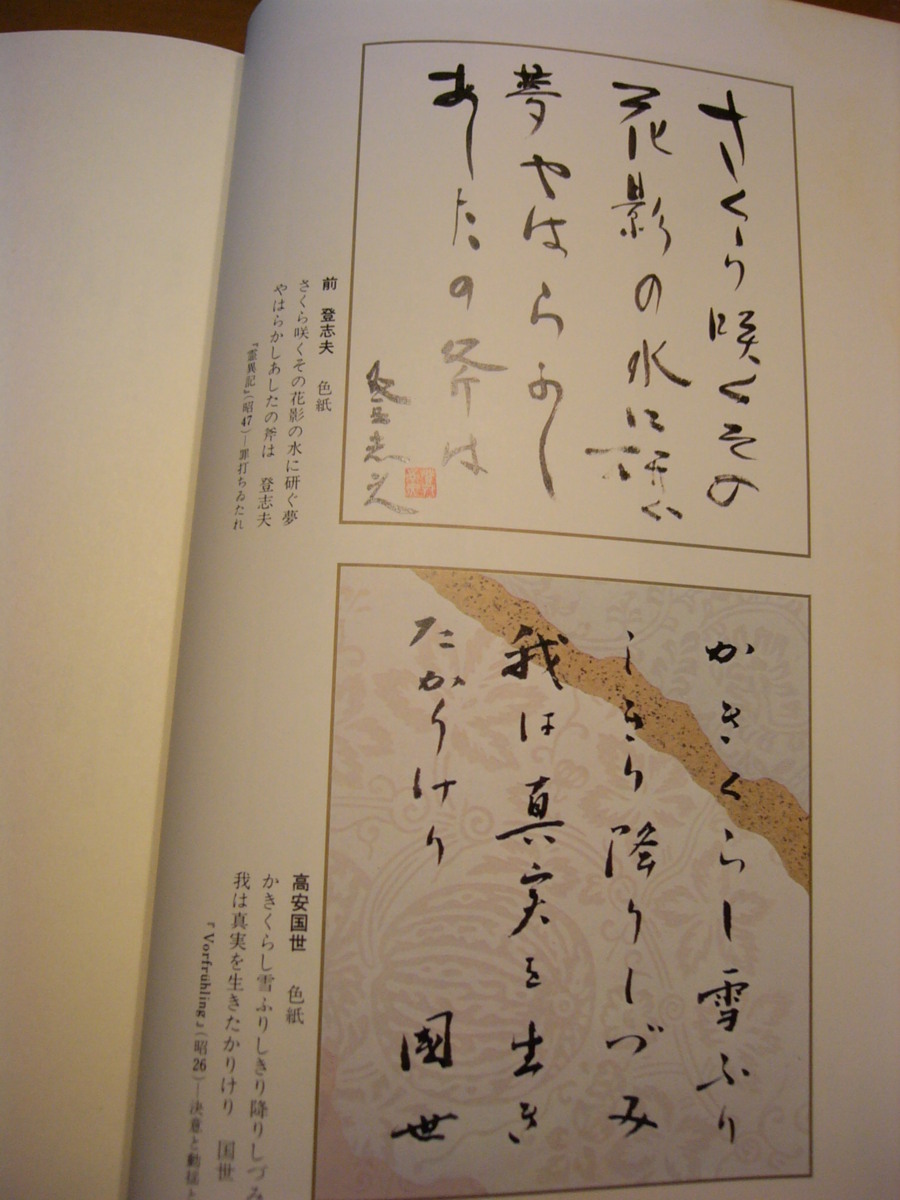 さくら咲くその
花影の水に研ぐ
夢やはらかし
あしたの斧は
登志夫
前 登志夫 色紙
さくら咲くその花影の水に研ぐ夢
やはらかしあしたの斧は 登志夫
『霊異記』(昭47)―罪打ちゐたれ
かきくらし雪ふり
しきり降りしづみ
我は真実を生き
たかりけり 國世
高安国世 色紙
かきくらし雪ふりしきり降りしづみ
我は真実を生きたかりけり 国世
『Vorfrühling』(昭26)―決意と動揺と